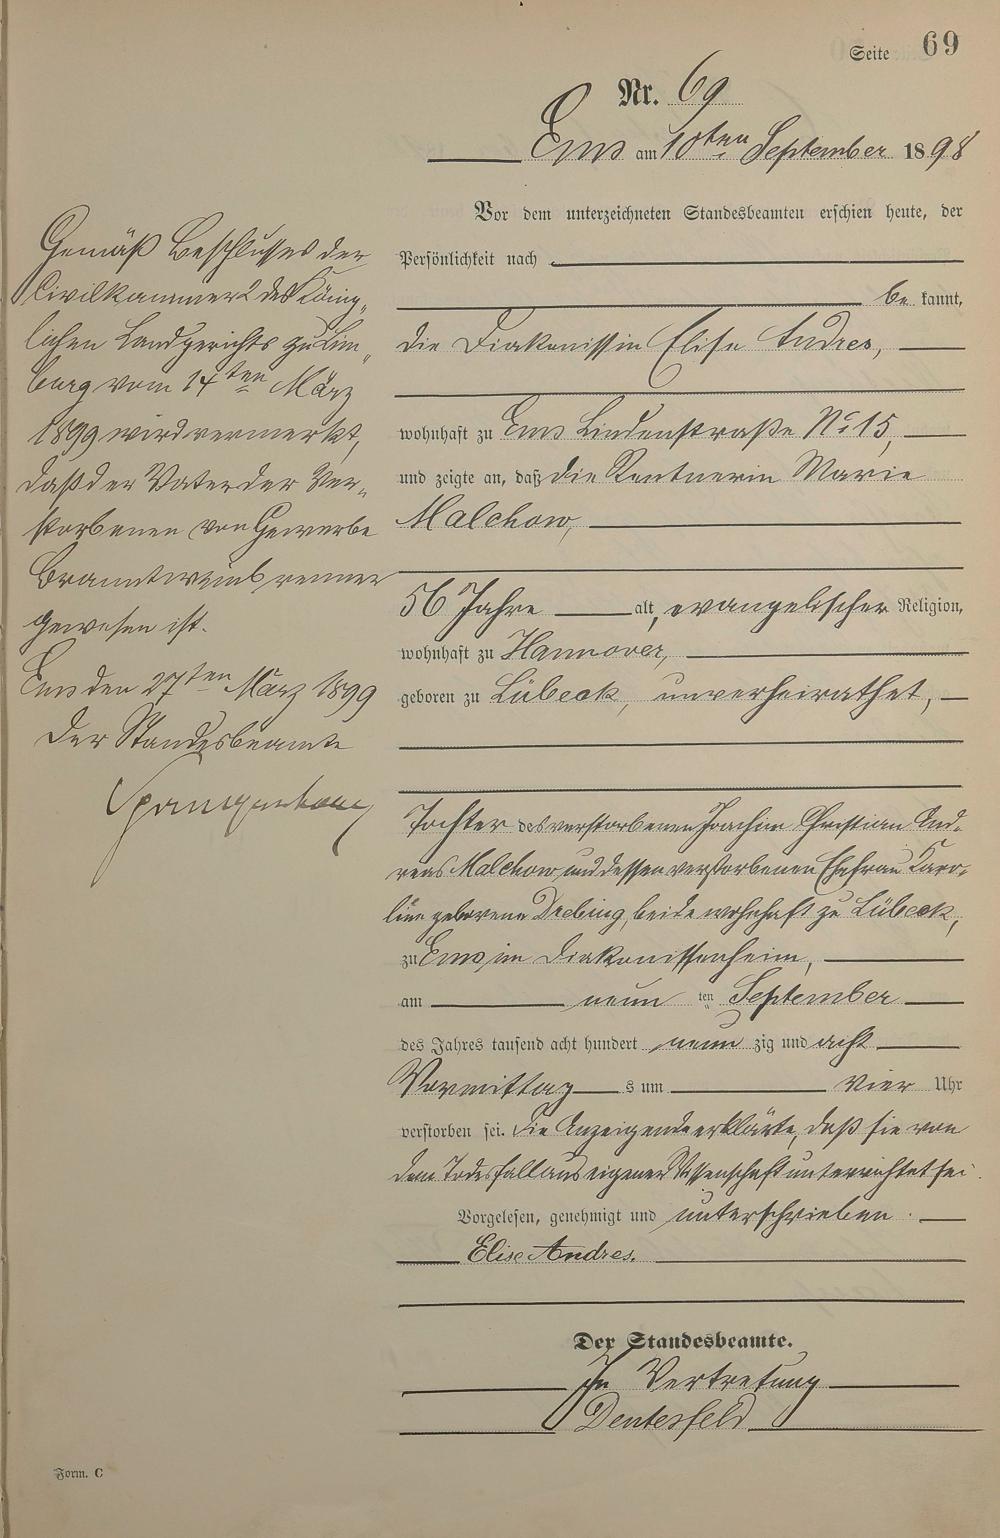 Seite 69
Nr. 69
Ems am 10ten September 1898
Vor dem unterzeichneten Standesbeamten erschien heute, der
Persönlichkeit nach
be kannt,
die Diakonissin Elise Andres,
wohnhaft zu Ems Lindenstraße No 15,
und zeigte an, daß die Rentnerin Marie
Malchow,
56 Jahre alt, evangelischer Religion,
wohnhaft zu Hannover,
geboren zu Lübeck, unverheirathet,
Tochter des verstorbenen Joachim Christian And-
reas Malchow und dessen verstorbenen Ehefrau Karo-
line geborene Drebing, beide wohnhaft zu Lübeck,
zu Ems im Diakonissenheim,
am neun ten September
des Jahres tausend acht hundert neun zig und acht
Vormittag s um vier Uhr
verstorben sei. Die Anzeigende erklärte, daß sie von
dem Todesfall aus eigener Wissenschaft unterrichtet sei.
Vorgelesen, genehmigt und unterschrieben.
Elise Andres.
Der Standesbeamte.
In Vertretung
Gemäß Beschlusses der
Civilkammer 2 des König-
lichen Landgerichts zu Lim-
burg vom 14ten März
1899 wird vermerkt,
daß der Vater der Ver-
storbenen von Gewerbe
Branntweinbrenner
gewesen ist.
Ems den 27ten März 1899
Der Standesbeamte
Form. C